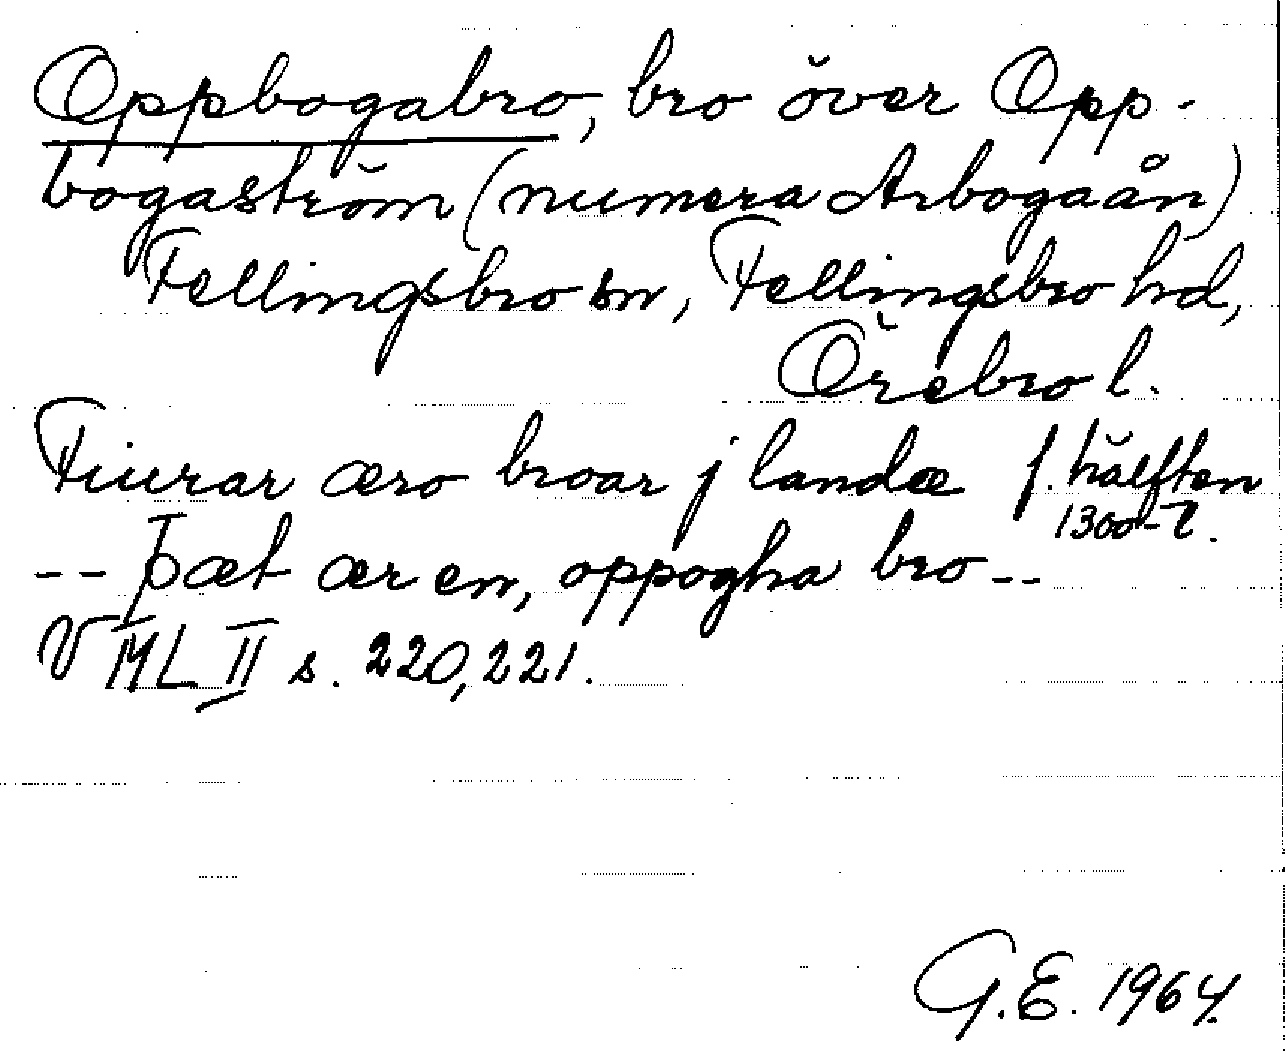 Oppbogabro, bro över Opp-
bogaström (numera Arbogaån)
Fellingsbro sn, Fellingsbro hd,
Örebro l.
Fiurar æro broar j landæ f. hälften
1300-t.
-- Þæt ær en, oppogha bro --
VML II s. 220, 221.
G.E. 1964.